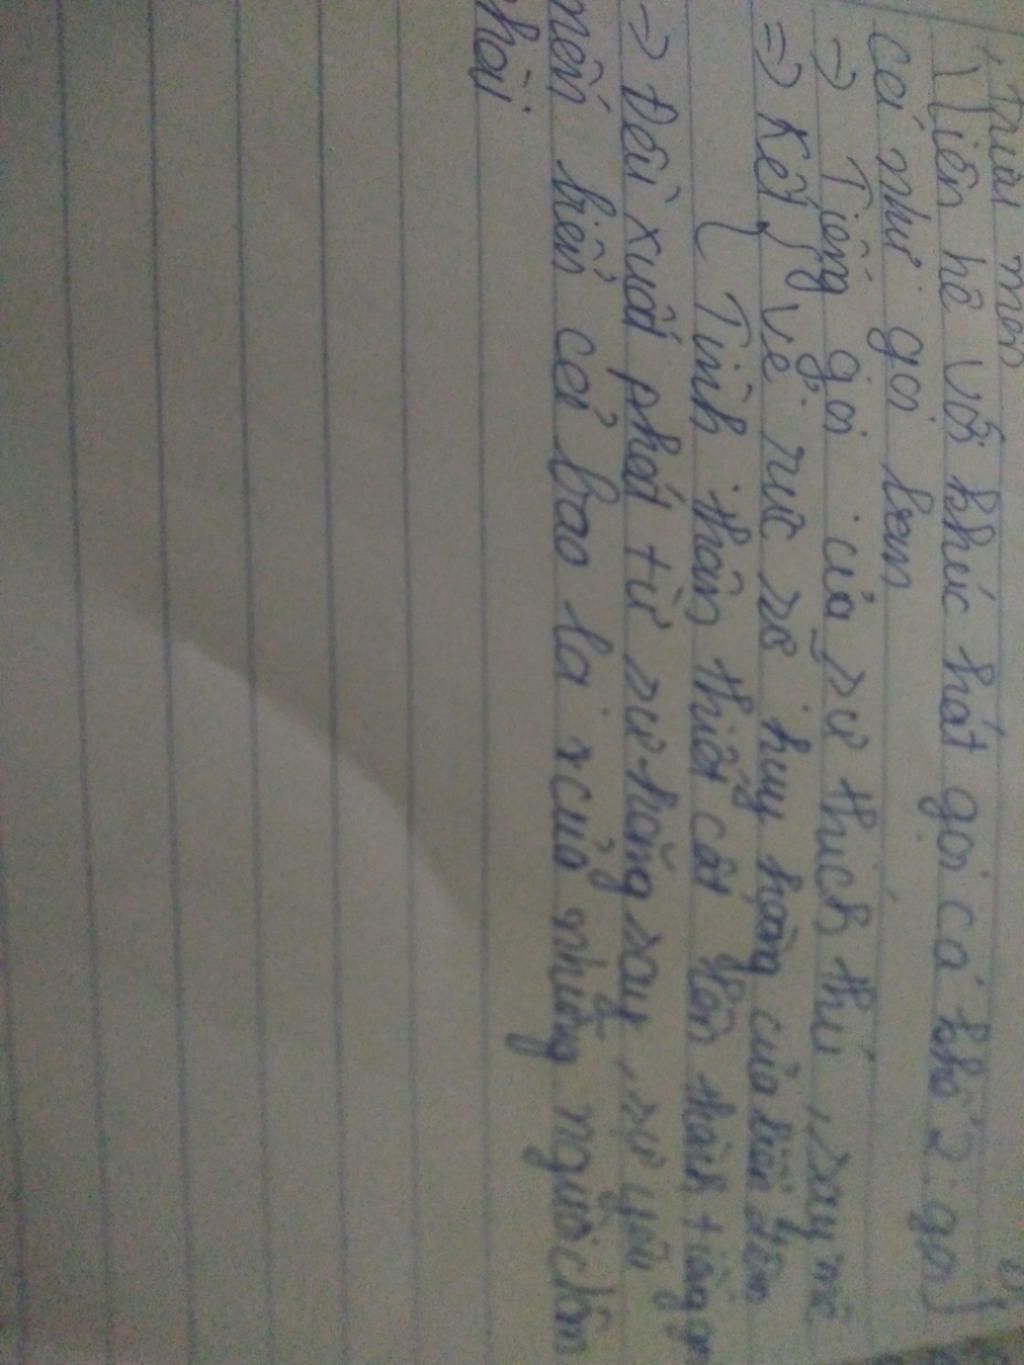 trìu mến
(Liên hệ với khúc hát gọi cá khổ 2: gọi
cá như gọi bạn)
=> Tiếng gọi của sự thích thú, say mê
=> Kết { Vẻ rực rỡ huy hoàng của biển đêm
{ Tình thân thiết cất lên thành tiếng
=> Đều xuất phát từ sự hăng say, sự yêu
mến biển cả bao la của những người dân
chài